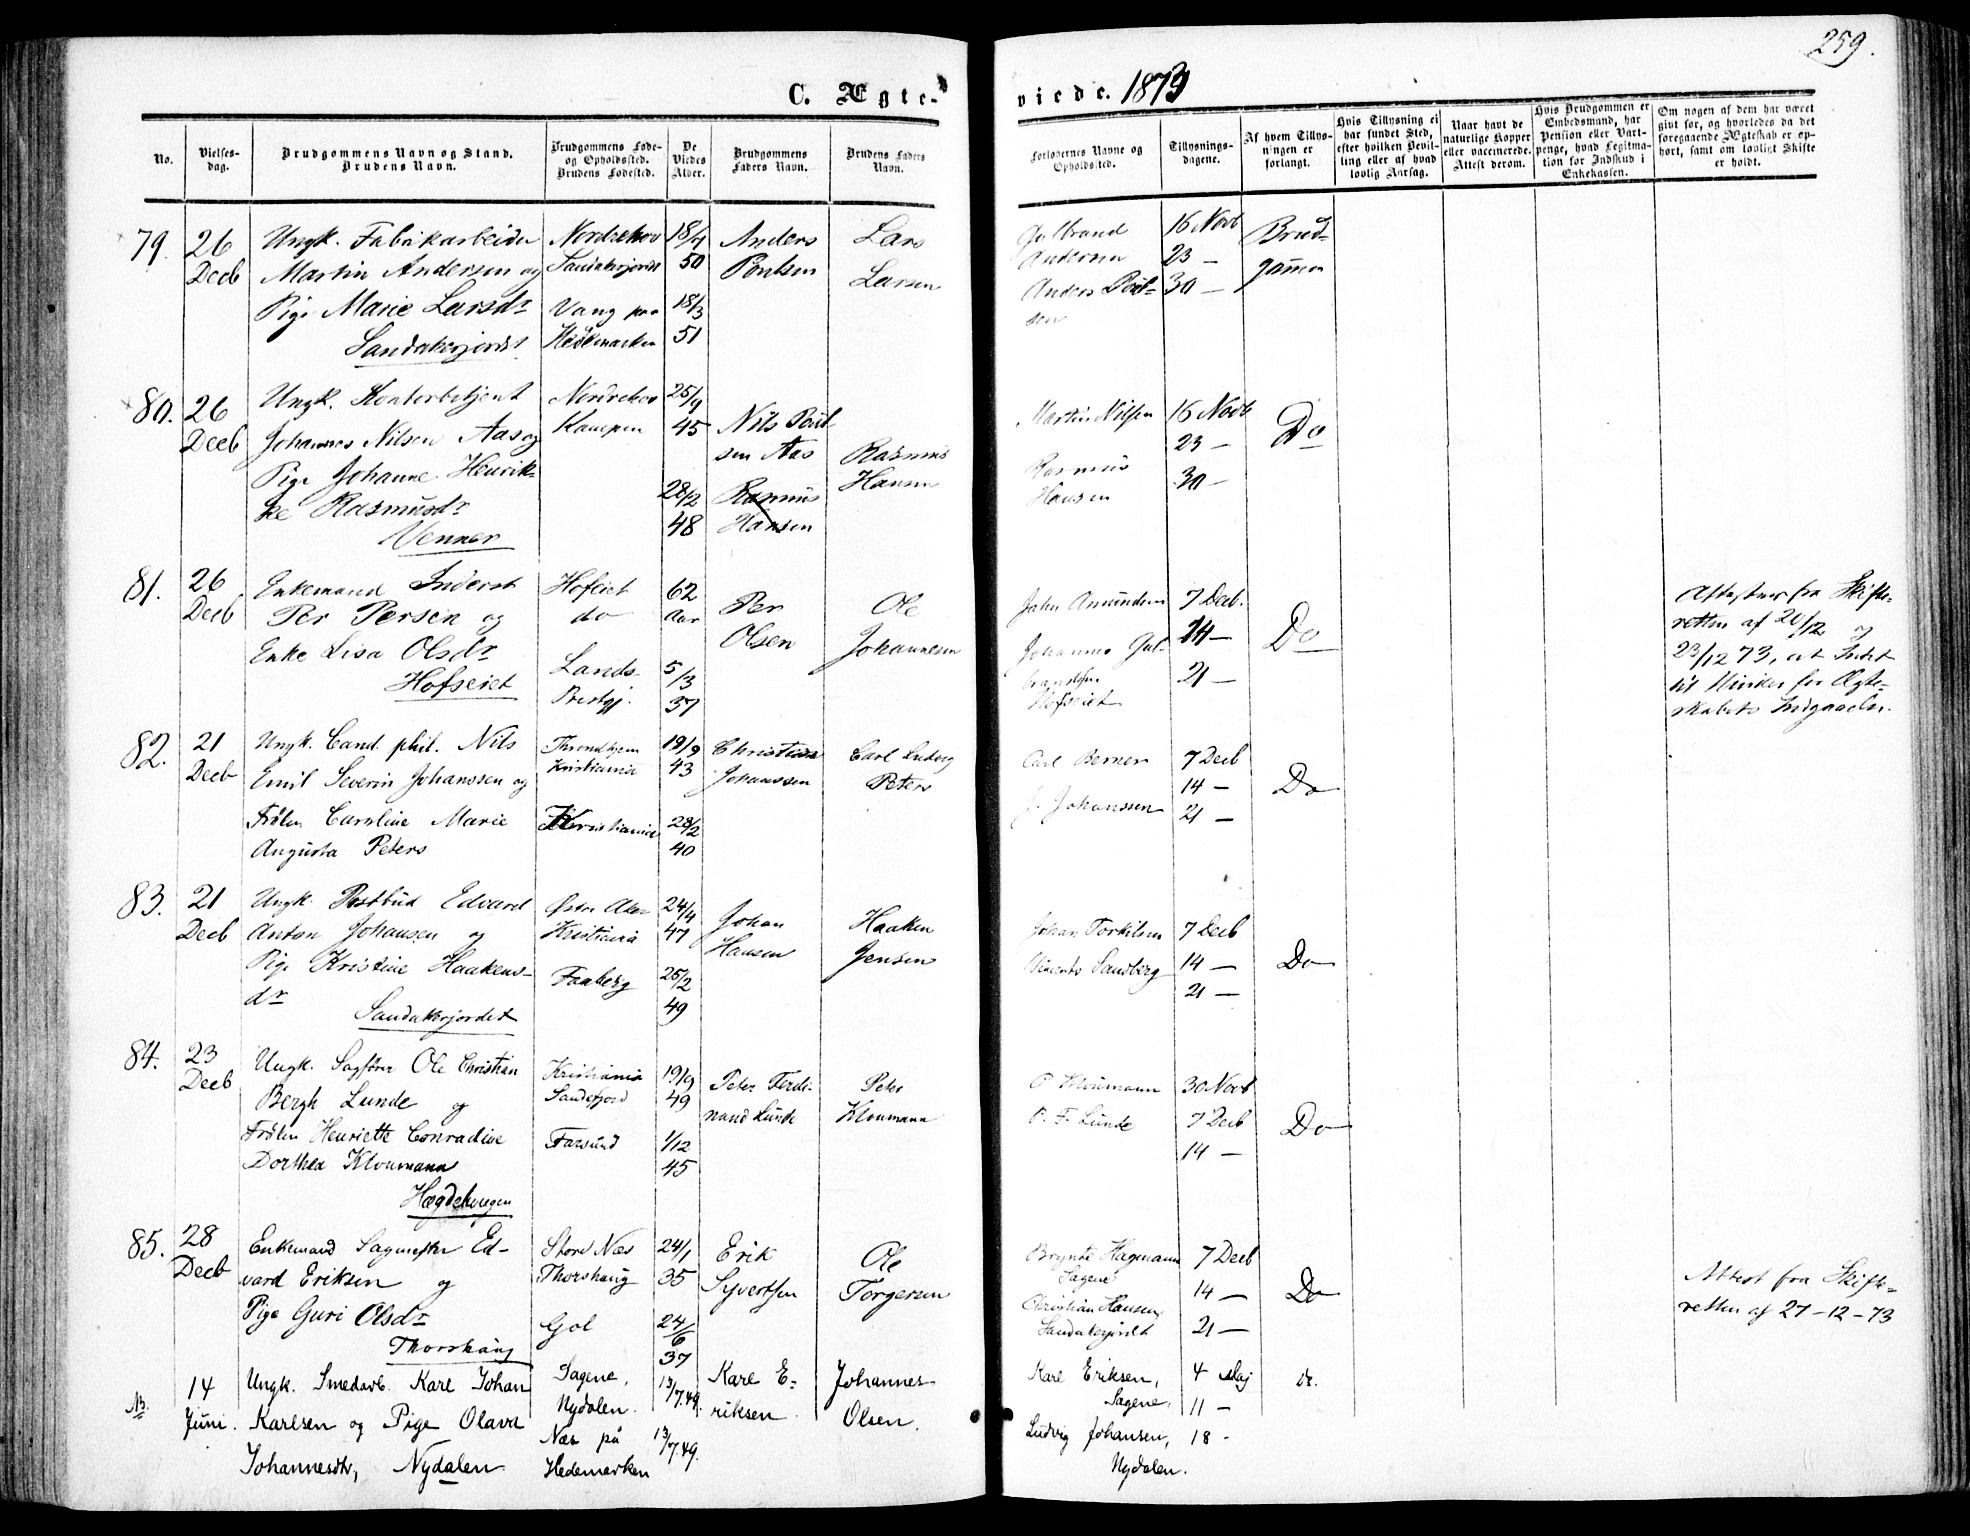 259.
C. Ægte-
viede. 1873
No.
Vielses-
dag.
Brudgommens Navn og Stand.
Brudens Navn.
Brudgommens Føde-
og Opholdssted.
Brudens Fødested.
De
Viedes
Alder.
Brudgommens
Faders Navn.
Brudens Faders
Navn.
Forlovernes Navne og
Opholdssted.
Tillysnings-
dagene.
Af hvem Tillys-
ningen er
forlangt.
Hvis Tillysning ei
har fundet Sted,
efter hvilken Bevil-
ling eller af hvad
lovlig Aarsag.
Naar havt de
naturlige Kopper
eller vaccinerede.
Attest derom.
Hvis Brudgommen er
Embedsmand, har
Pension eller Vart-
penge, hvad Legitima-
tion for Indskud i
Enkekassen.
Om nogen af dem har været
gift før, og hvorledes da det
foregaaende Ægteskab er op-
hørt, samt om lovligt Skifte
er holdt.
79. 26 Decb
Ungk. Fabrikarbeider
Martin Andersen og
Pige Marie Larsdr
Sandakerjordet
Nordrehov
Sandakerjordet
Vang paa
Hedemarken
18/7
50
18/3
51
Anders
Poulsen
Lars
Larsen
Gulbrand
Andersen
Anders Poul-
sen
16 Novb
23 —
30 —
Brud-
gommen
80. 26 Decb
Ungk. Kontorbetjent
Johannes Nilsen Aas og
Pige Johanne Henrik-
ke Rasmusdr
Nordrehov
Kampen
25/9
45
28/2
48
Nils Poul
sen Aas
Rasmus
Hansen
Rasmus
Hansen
Martin Nilsen
Rasmus
Hansen
16 Novb
23 —
30 —
Do
81. 26 Decb
Enkemand Inderst
Per Persen og
Enke Lisa Olsdr
Hofseiet
Hofseiet
do
Lands
Prestgj.
62
Aar
5/3
37
Per
Olsen
Ole
Johannesen
John Amundsen
Johannes Gul-
brandsen
Hofseiet
7 Decb.
14 —
21 —
Do
Attester fra Skifte-
retten af 20/12 og
23/12 73, at Intet
til Hinder for Ægte-
skabets Indgaaelse.
82. 21 Decb
Ungk. Cand. phil. Nils
Emil Severin Johanssen og
Frøken Caroline Marie
Augusta Peters
Throndhjem
Kristiania
Kristiania
19/9
43
28/2
40
Christian
Johanssen
Carl Ludvig
Peters
Carl Berner
J. Johanssen
7 Decb
14 —
21 —
Do
83. 21 Decb
Ungk. Postbud Edvard
Anton Johansen og
Pige Kristine Haakens-
dr
Sandakerjordet
Østre Aker
Kristiania
Faaberg
24/4
47
25/2
49
Johan
Hansen
Haaken
Jensen
Johan Torkilsen
Vincents Sandberg
7 Decb
14 —
21 —
Do
84. 23 Decb
Ungk. Sagfører Ole Christian
Bergh Lunde og
Frøken Henriette Conradine
Dorthea Kloumann
Hægdehaugen
Kristiania
Sandefjord
Farsund
19/9
49
1/12
45
Peter Ferdi-
nand Lunde
Peter
Kloumann
P. Kloumann
P. F. Lunde
30 Novb
7 Decb
14 —
Do
85. 28 Decb
Enkemand Sagmester Ed-
vard Eriksen og
Pige Guri Olsdr
Thorshaug
Store Næs
Thorshaug
Gol
24/1
35
24/6
37
Erik
Syvertsen
Ole
Torgersen
Brynte Hagmann
Sagene
Christian Hansen,
Sandakerjordet
7 Decb
14 —
21 —
Do
Attest fra Skifte-
retten af 27-12-73
Nb. 14 Juni.
Ungk. Smedarb. Karl Johan
Karlsen og Pige Olava
Johannesdtr, Nydalen
Sagene,
Nydalen.
Næs på
Hedemarken
13/7.49.
13/7.49.
Karl E-
riksen.
Johannes
Olsen.
Karl Eriksen,
Sagene,
Ludvig Johansen,
Nydalen.
4 Maj
11 —
18 -
do.